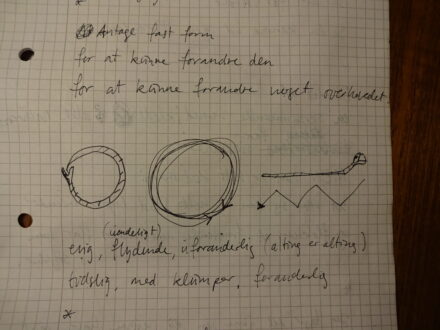 *
Antage fast form
for at kunne forandre den
for at kunne forandre noget overhovedet
(uendeligt)
evig, flydende, uforanderlig (alting er alting)
tidslig, med klumper, foranderlig
*